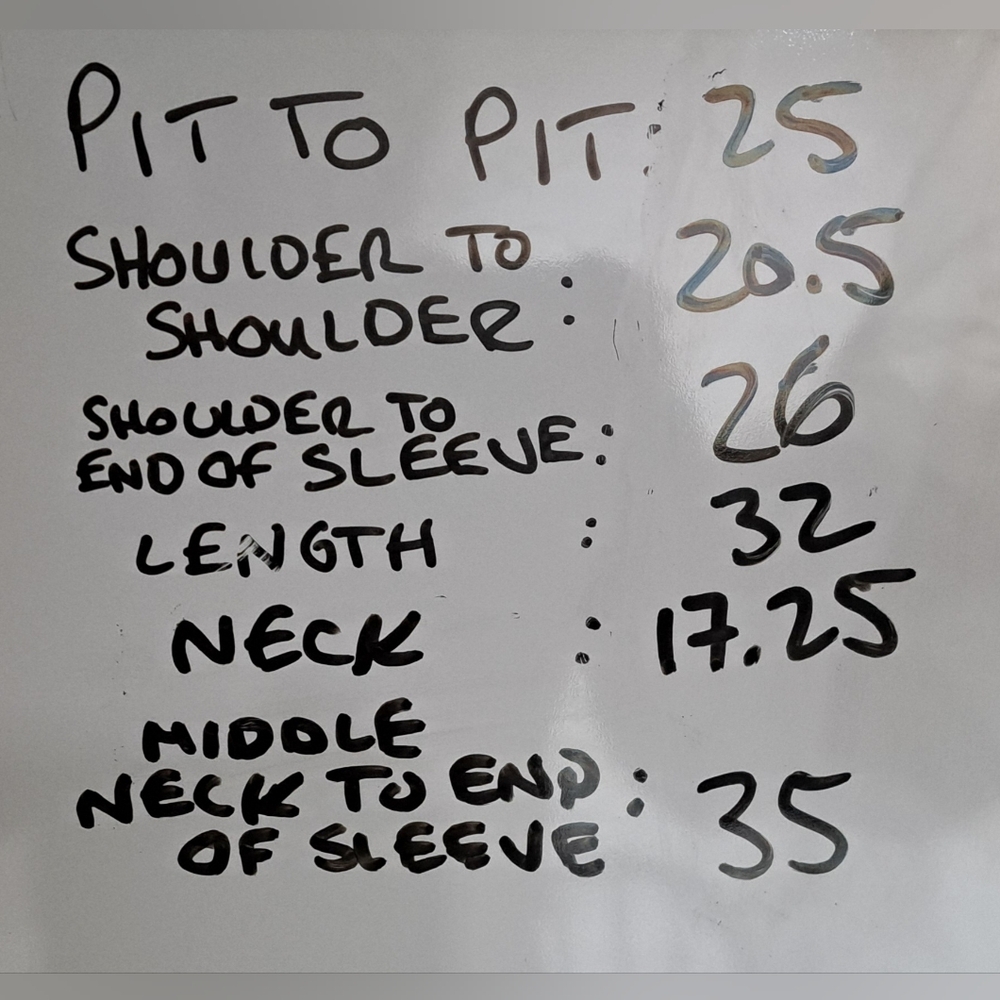 PIT TO PIT: 25
SHOULDER TO
SHOULDER: 20.5
SHOULDER TO
END OF SLEEVE: 26
LENGTH : 32
NECK : 17.25
MIDDLE
NECK TO END: 35
OF SLEEVE